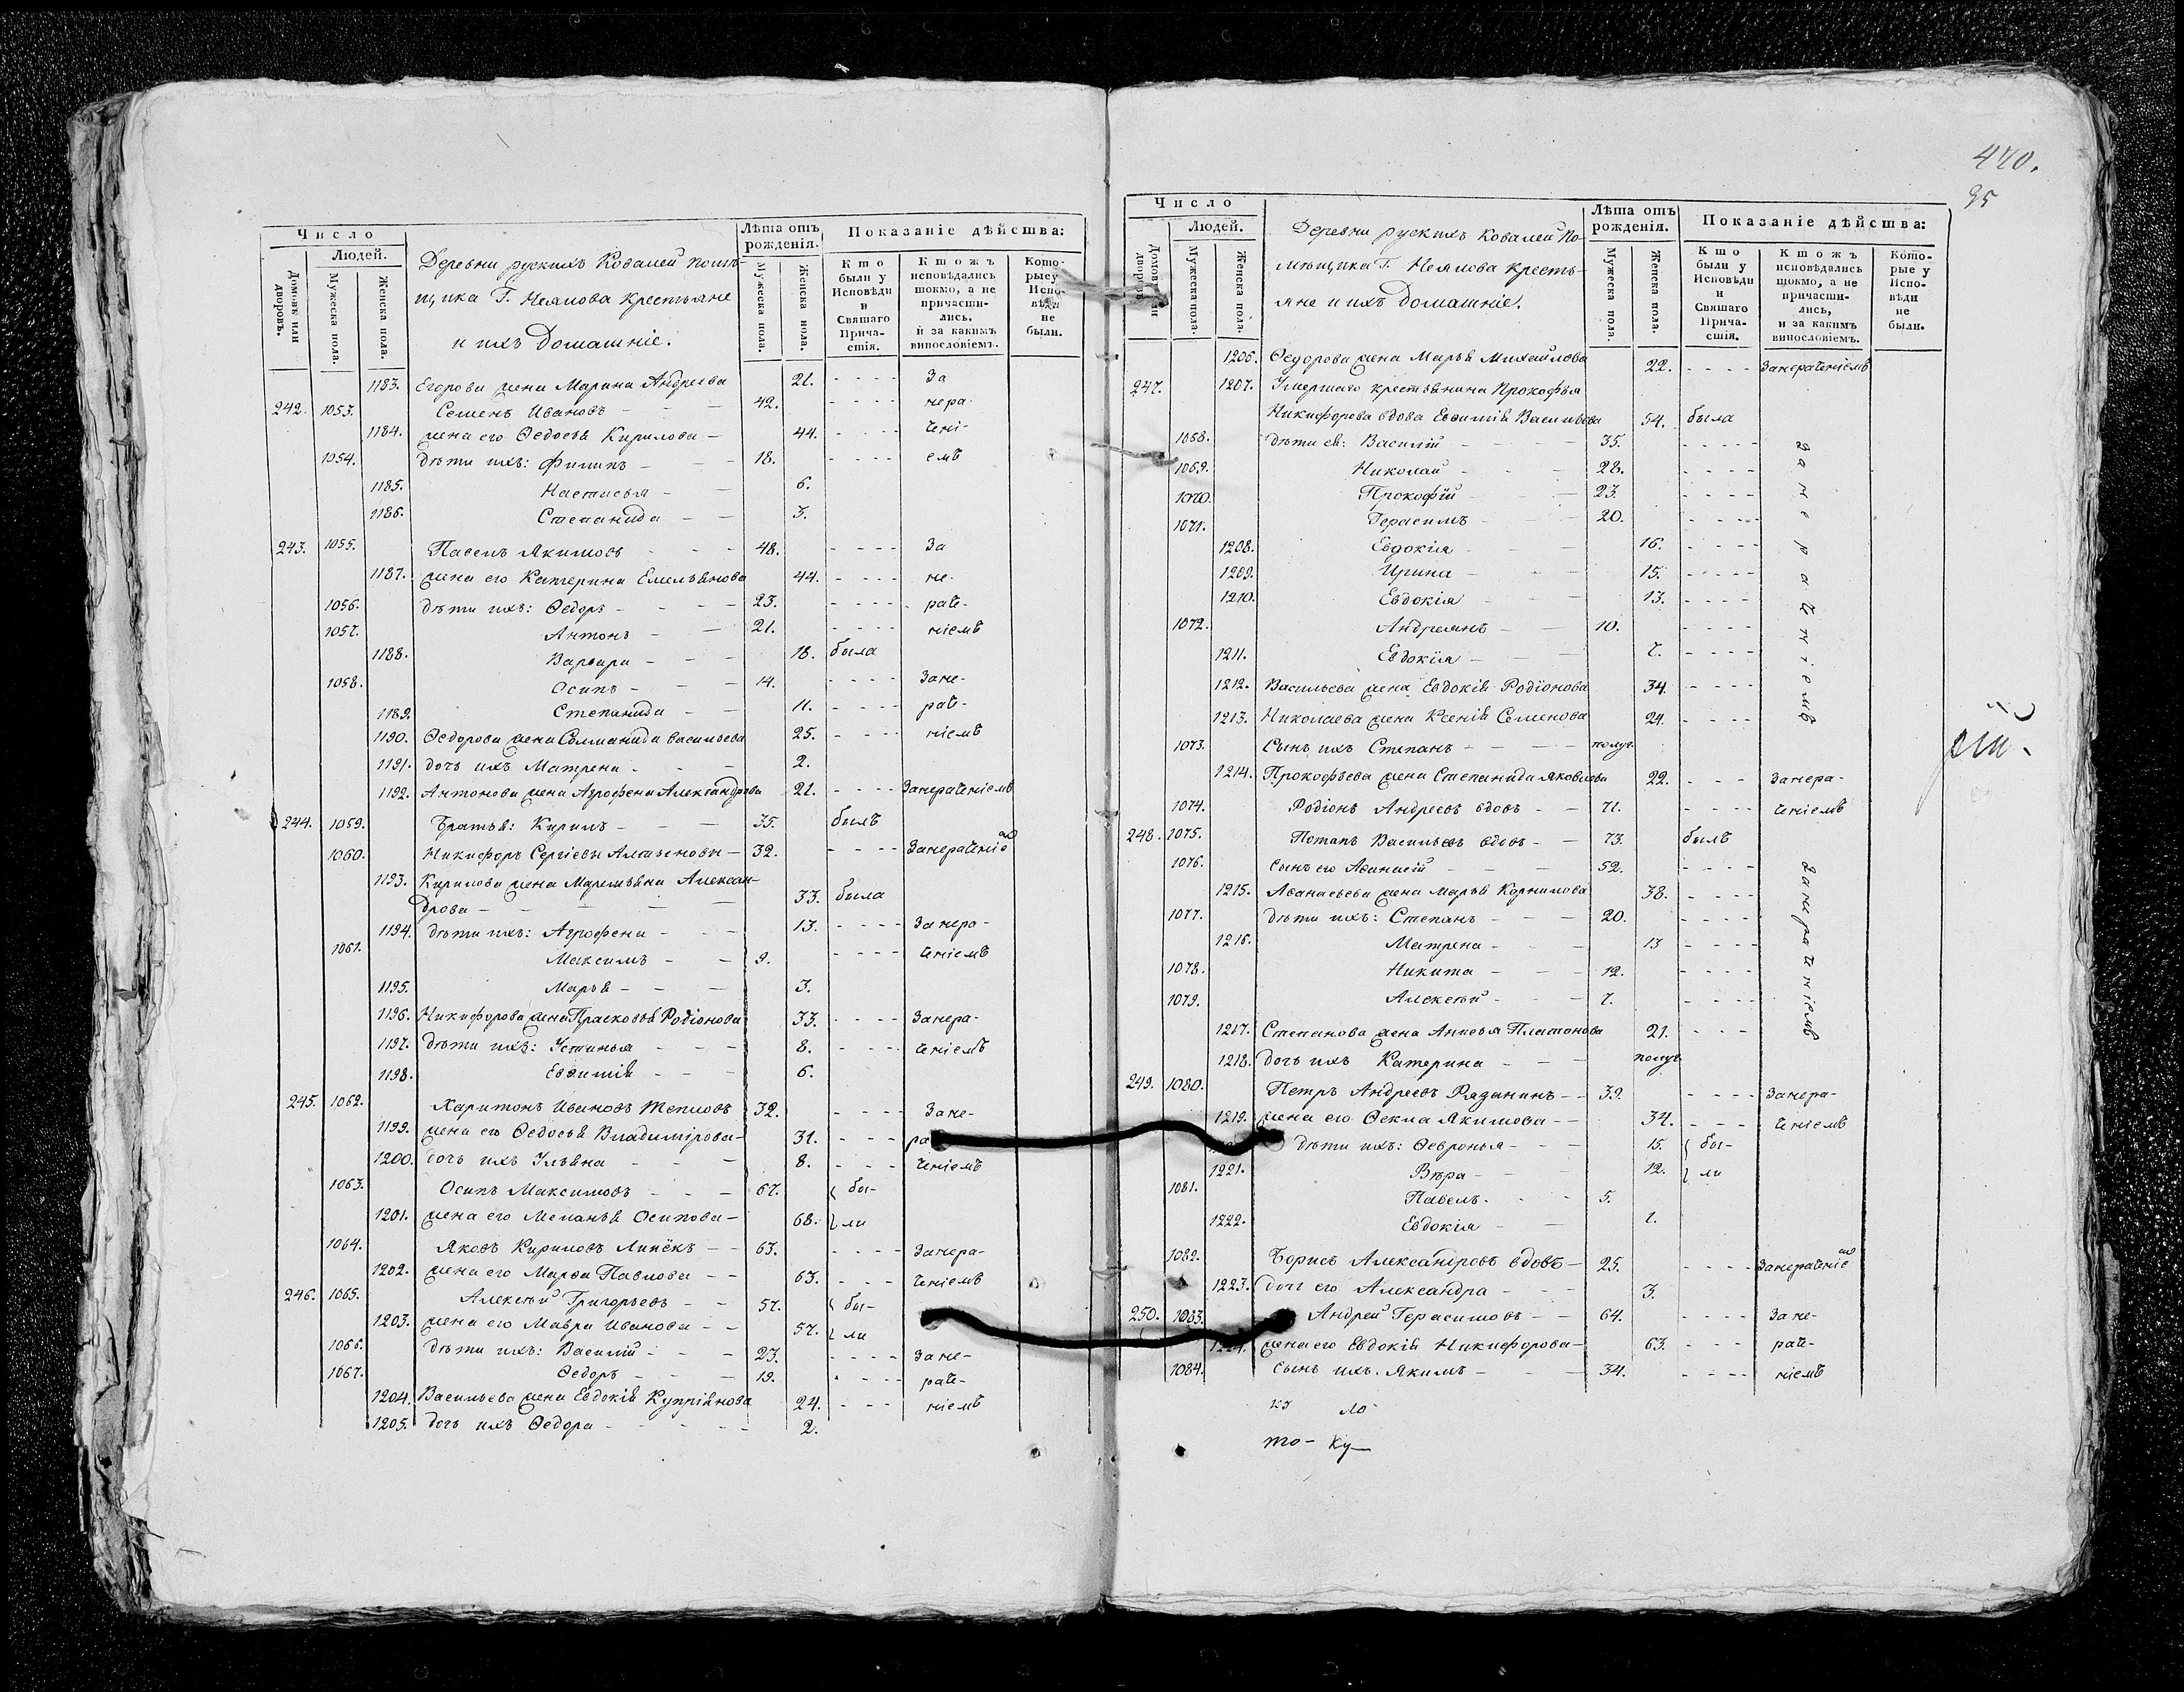 Число
Людей.
Домовъ или дворовъ.
Мужеска пола.
Женска пола.
Деревни рускихъ Ковалей помѣ-
щика Г. Неялова крестьяне
и ихъ домашніе.
Лѣта отъ рожденія.
Мужеска пола.
Женска пола.
Показаніе дѣйства:
Кто были у Исповѣди и Святаго Причастія.
Ктожъ исповѣдались токмо, а не причастились, и за какимъ винословіемъ.
Которые у Исповѣди не были.
1183. Егорова жена Марина Андреева 21. - - - - За
242. 1053. Семенъ Ивановъ 42. - - - - нера-
1184. жена его Ѳедосья Кирилова 44. - - - - чені-
1054. дѣти ихъ: Филипъ 18. - - - - емъ
1185. Настасья 6.
1186. Степанида 3.
243. 1055. Павелъ Якимовъ 48. - - - - За
1187. жена его Катерина Емельянова 44. - - - - не-
1056. дѣти ихъ: Ѳедоръ 23. - - - - раче-
1057. Антонъ 21. - - - - ніемъ
1188. Варвара 18. была
1058. Осипъ 14. - - - - Зане-
1189. Степанида 11. - - - - раче-
1190. Ѳедорова жена Соломанида Васильева 25. - - - - ніемъ
1191. дочь ихъ Матрена 2.
1192. Антонова жена Агрофена Александрова 21. - - - - Занераченіемъ
244. 1059. Братья: Кирилъ 35. былъ
1060. Никифоръ Сергіевы 32. - - - - Занераченіе
1193. Кирилова жена Маремьяна Алексан-
дрова 33. была
1194. дѣти ихъ: Агрофена 13. - - - - Занера-
1061. Максимъ 9. - - - - ченіемъ
1195. Марья 3.
1196. Никифорова жена Прасковья Родіонова 33. - - - - Занера-
1197. дѣти ихъ: Устинья 8. - - - - ченіемъ
1198. Евѳимія 6.
245. 1062. Харитонъ Ивановъ Тепловъ 32. - - - - Зане-
1199. жена его Ѳедосья Владимірова 31. - - - ра
1200. дочь ихъ Ульяна 8. - - - ченіемъ
1063. Осипъ Максимовъ 67. бы-
1201. жена его Меланья Осипова 68. ли
1064. Яковъ Кириловъ 63. - - - - Занера-
1202. жена его Марѳа Павлова 63. - - - ченіемъ
246. 1065. Алексѣй Григорьевъ 57. бы-
1203. жена его Мавра Иванова 57. ли
1066. дѣти ихъ: Василій 23. - - - - Зане-
1067. Ѳедоръ 19. - - - - раче-
1204. Васильева жена Евдокія Купріянова 24. - - - ніемъ
1205. дочь ихъ Ѳедора 2.
470.
95
Число
Людей.
Домовъ или дворовъ
Мужеска пола.
Женска пола.
Деревни рускихъ Ковалей По-
мѣщика Г. Неялова кресть-
яне и ихъ домашніе.
Лѣта отъ рожденія.
Мужеска пола.
Женска пола.
Показаніе дѣйства:
Кто были у Исповѣди и Святаго Причастія.
Ктожъ исповѣдались токмо, а не причастились, и за какимъ винословіемъ.
Которые у Исповѣди не были.
1206. Ѳедорова жена Марья Михайлова 22. - - - - Занераченіемъ
247. 1207. Умершаго крестьянина Прокофья
Никифорова вдова Евѳимія Васильева 54. была
1068. дѣти ея: Василій 35. - - - - Занераченіемъ
1069. Николай 28. - - - -
1070. Прокофій 23. - - - -
1071. Герасимъ 20. - - - -
1208. Евдокія 16. - - - -
1209. Ирина 15. - - - -
1210. Евдокія 13. - - - -
1072. Андреянъ 10. - - - -
1211. Евдокія 7. - - - -
1212. Васильева жена Евдокія Родіонова 34. - - - -
1213. Николаева жена Ксенія Семенова 24. - - - -
1073. Сынъ ихъ Степанъ полуг.
1214. Прокофьева жена Степанида Яковлева 22. - - - Занера-
1074. Родіонъ Андреевъ вдовъ 71. - - - - ченіемъ
248. 1075. Потапъ Васильевъ вдовъ 73. былъ
1076. Сынъ его Аѳанасій 52. - - - - Занераченіемъ
1215. Аѳанасьева жена Марья Корнилова 38. - - - -
1077. дѣти ихъ: Степанъ 20. - - - -
1216. Матрена 13 - - - -
1078. Никита 12. - - - -
1079. Алексѣй 7. - - - -
1217. Степанова жена Анисья Платонова 21. - - -
1218. дочь ихъ Катерина полуг
249. 1080. Петръ Андреевъ Рязанинъ 39. - - - - Занера-
1219. жена его Ѳекла Якимова 34. - - - ченіемъ
дѣти ихъ: Ѳевронья 15. бы-
1221. Вѣра 12. ли
1081. Павелъ 5.
1222. Евдокія 1.
1082. Борисъ Александровъ вдовъ 25. - - - - Занераченіе
1223. дочь его Александра 3.
250. 1083. Андрей Герасимовъ 64. - - - - Зане-
жена его Евдокія Никифорова 63. - - - раче-
1084. Сынъ ихъ Якимъ 34. - - - - ніемъ